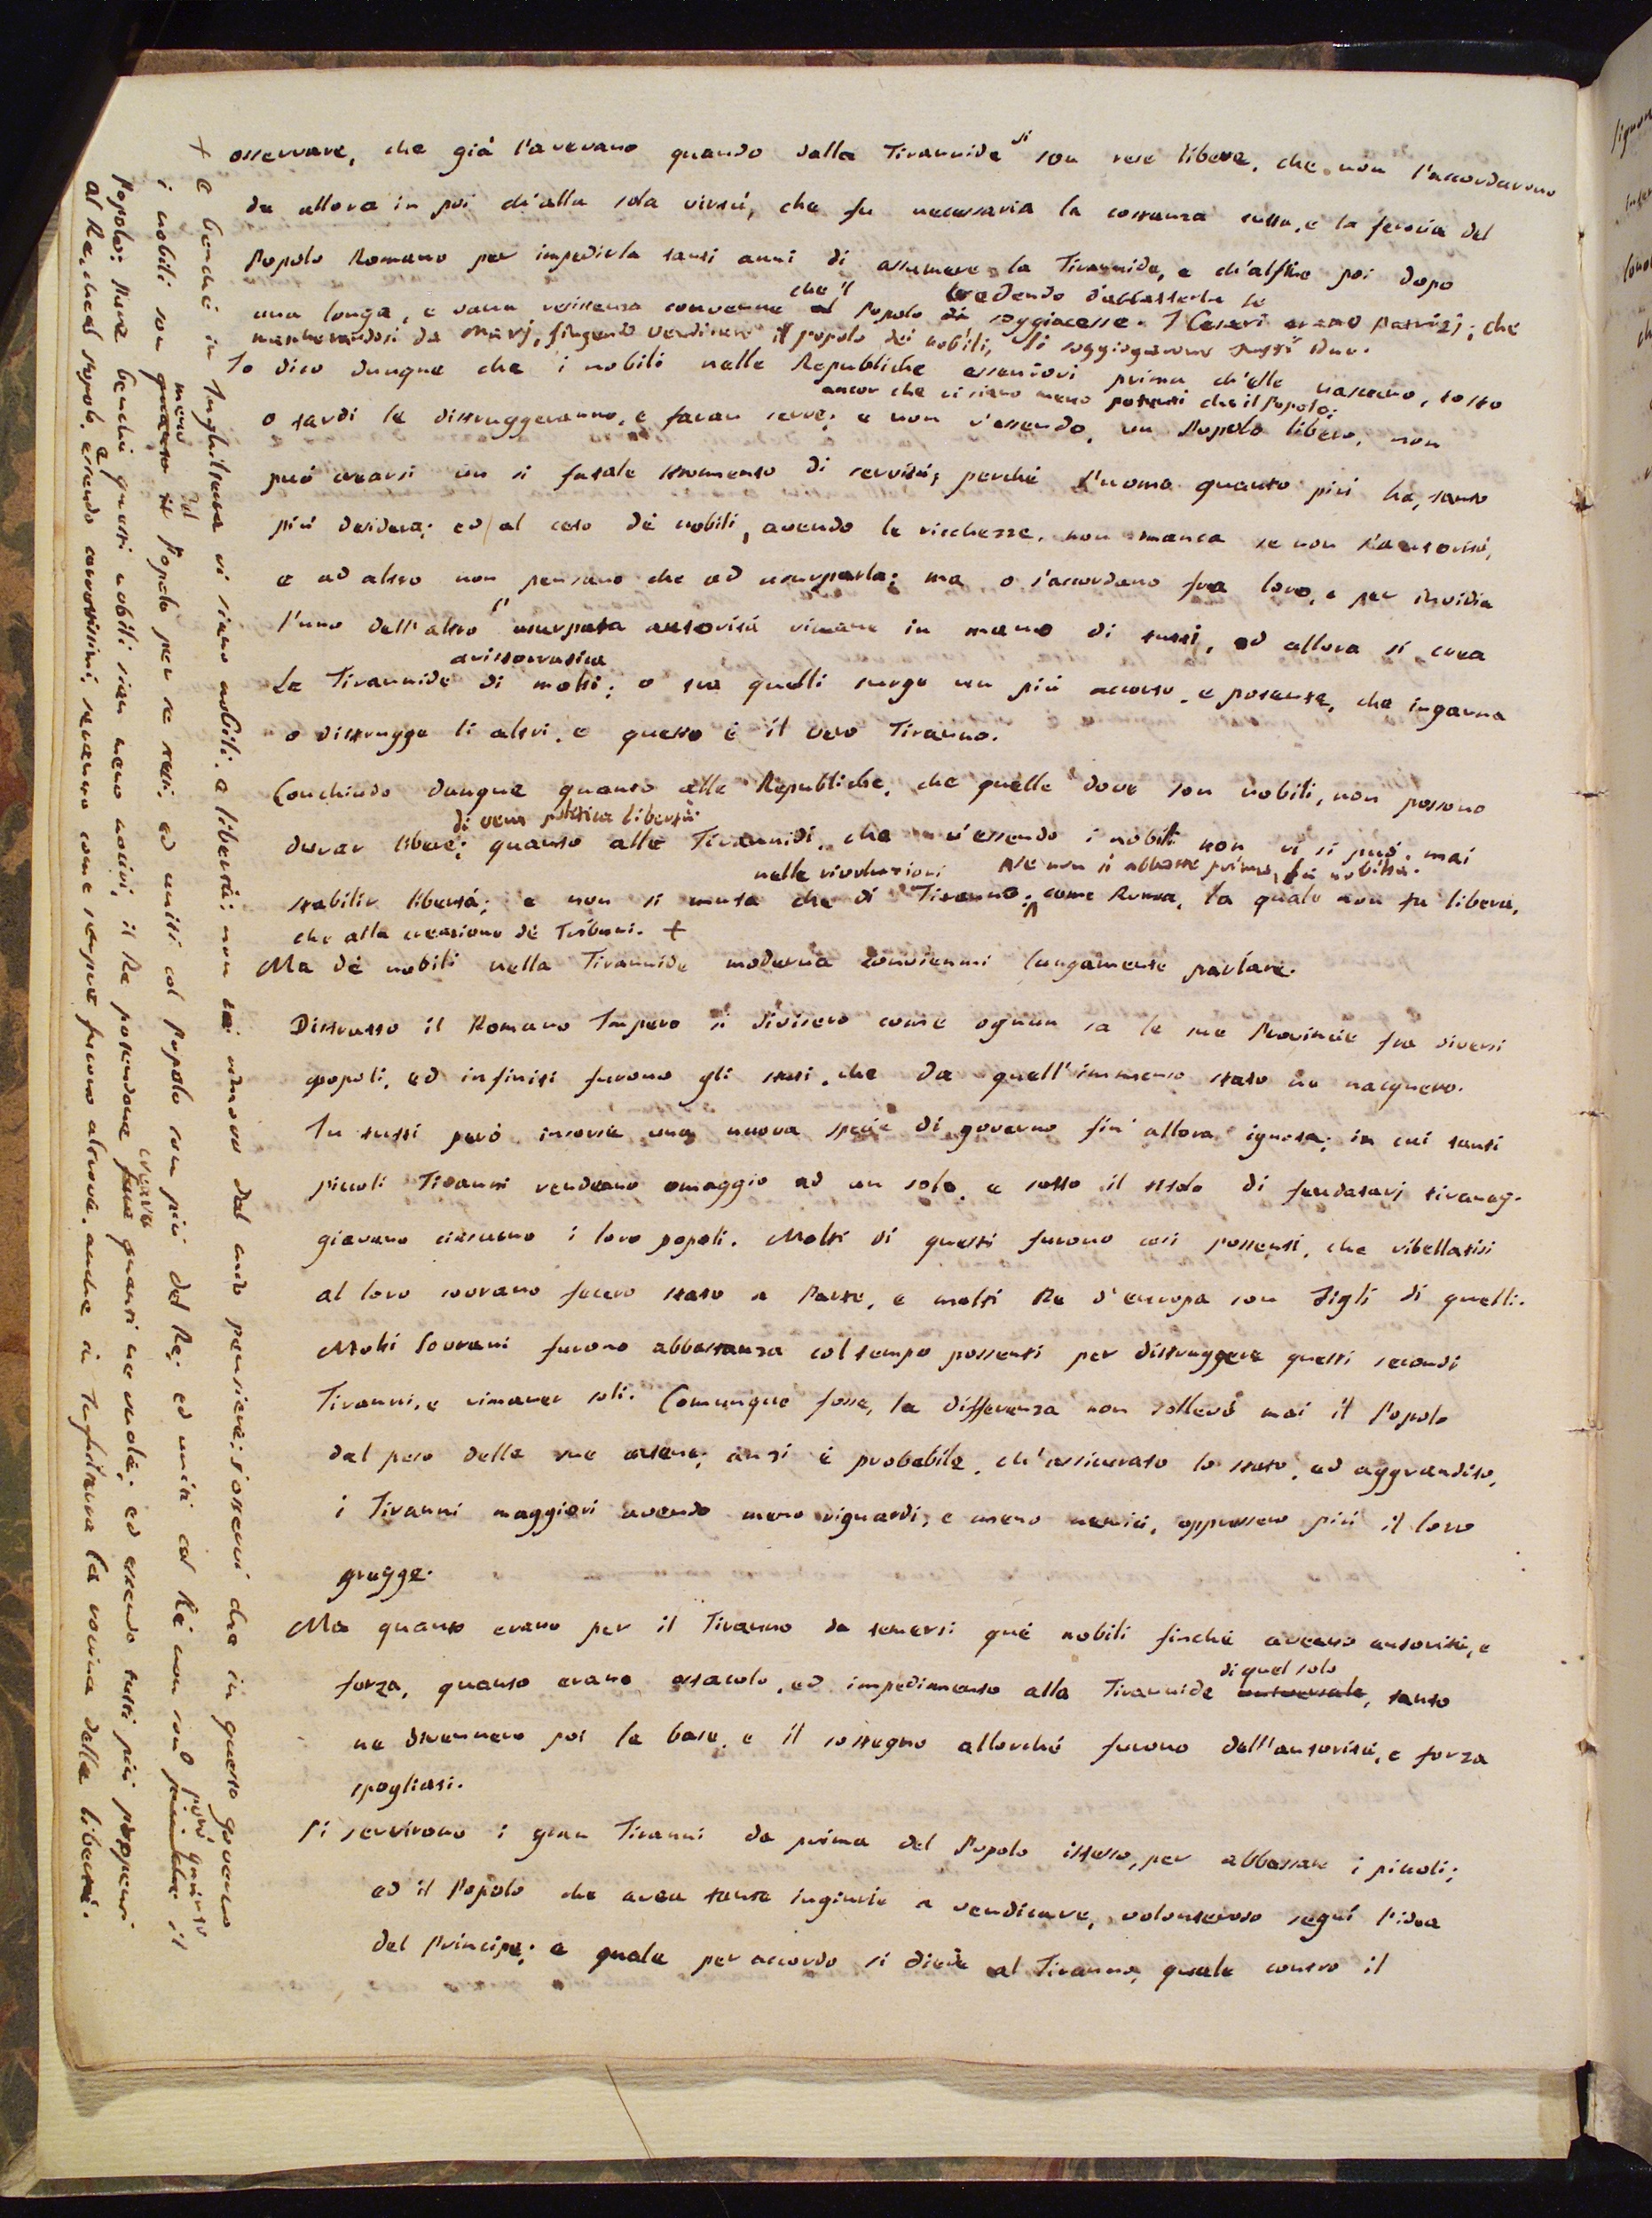 osservare, che già l'avevano quando dalla Tirannide si son rese libere, che non l'accordarono
da allora in poi ch'alla sola virtù, che fu necessaria la costanza tutta, e la ferocia del
Popolo Romano per impedirla tanti anni di assumere la Tirannide, e ch'alfine poi dopo
una longa, e vana resistenza convenne che il Popolo di soggiacesse. I Cesari erano Patrizj; che
credendo d'abbasserla le
mascherandosi da Marj, fingendo vendicare il popolo dei nobili, li soggiogarono tutti due.
Io dico dunque che i nobili nelle Republiche essendovi prima ch'elle nascano, tosto
ancor che vi sieno meno potenti che il Popolo;
o tardi le distruggeranno, e faran serve; e non v'essendo, un Popolo libero, non
può crearsi un sì fatale stromento di servitù; perché l'uomo quanto più ha, tanto
più desidera; ed al ceto dè nobili, avendo le ricchezze, non manca se non l'autorità,
e ad altro non pensano che ad usurparla; ma o s'accordano fra loro, e per invidia
l'uno dell'altro l'usurpata autorità rimane in mano di tutti, ed allora si crea
aristocratica
La Tirannide di molti; o tra quelli surge un più accorto, e potente, che inganna
o distrugge li altri, e questo è il vero Tiranno.
Conchiudo dunque quanto alle Republiche, che quelle dove son nobili, non possono
di vera politica libertà:
durar libere; quanto alle Tirannidi, che v'essendo i nobili non vi si può mai
nelle rivoluzioni se non si abbatte prima la nobiltà.
stabilir libertà; e non si muta che di Tiranno; come Roma, la quale non fu libera,
che alla creazione dè Tribuni. +
Ma dè nobili nella Tirannide moderna conviemmi lungamente parlare.
Distrutto il Romano Impero si divisero come ognun sa le sue Provincie fra diversi
popoli, ed infiniti furono gli stati, che da quell'immenso stato ne nacquero.
In tutti però insorse una nuova specie di governo fin' allora ignota; in cui tanti
piccoli Tiranni rendeano omaggio ad un solo, e sotto il titolo di feudatarj tiraneg-
giavano ciascuno i loro popoli. Molti di questi furono così possenti, che ribellatisi
al loro sovrano fecero stato a Parte, e molti Re d'europa son Figli di quelli.
Molti Sovrani furono abbastanza col tempo possenti per distruggere questi secondi
Tiranni, e rimaner soli. Comunque fosse, la differenza non sollevò mai il Popolo
dal peso delle sue catene; anzi è probabile, ch'assicurato lo stato, ed aggrandito,
i Tiranni maggiori avendo meno riguardi, e meno nemici, oppressero più il loro
gregge.
Ma quanto erano per il Tiranno da temersi què nobili finché aveano autorità, e
forza, quanto erano ostacolo, ed impedimento alla Tirannide universale di quel solo, tanto
ne divennero poi la base, e il sostegno allorché furono dell'autorità, e forza
spogliati.
Si servirono i gran Tiranni da prima del Popolo istesso, per abbassare i piccoli;
ed il Popolo che avea tante ingiurie a vendicare, volonteroso seguì l'idea
del Principe; e quale per accordo si diede al Tiranno, quale contro il
+ e benché in Inghilterra vi siano nobili, e libertà; non mi rimovo dal mio pensiere; s'osservi che in questo governo
i nobili son quanto meno il del Popolo per se stessi, ed uniti col popolo son più del Re; ed uniti col Re non son però quanto il
Popolo: Pure benché questi nobili sian meno nocivi, il Re potendone fare creare quanti ne vuole; ed essendo tutti più propensi
al Re, che al Popolo, e essendo corrottissimi; saranno come sempre furono altrove, anche in Inghilterra la rovina della libertà.